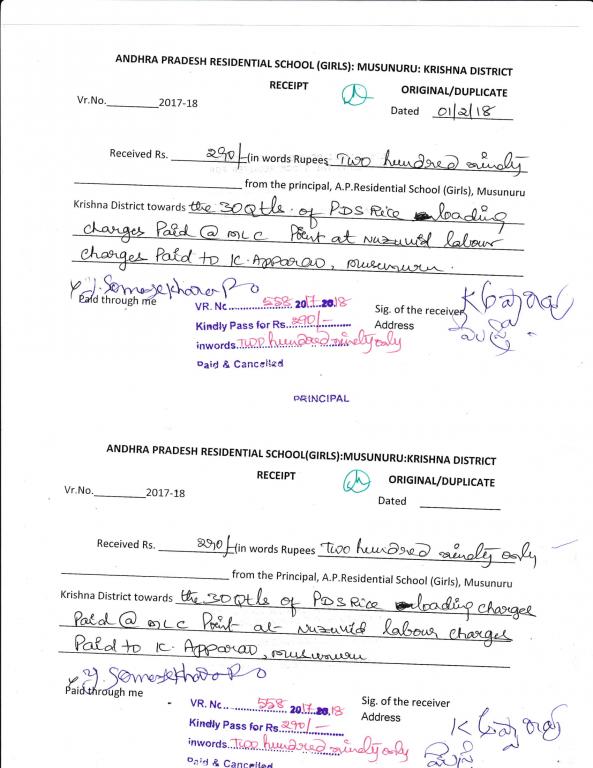 ANDHRA PRADESH RESIDENTIAL SCHOOL (GIRLS): MUSUNURU: KRISHNA DISTRICT
RECEIPT ORIGINAL/DUPLICATE
Vr.No.__________2017-18
Dated 01/2/18
Received Rs. 290/- (in words Rupees Two hundred ninety
from the principal, A.P.Residential School (Girls), Musunuru
Krishna District towards the 30 Qtls. of PDS Rice loading
charges Paid @ MLC Point at Nuzuvid labour
charges Paid to K. Apparao, Musunuru.
Y. Somasekhara Rao
Paid through me
VR. No. 558 2017.2018
Sig. of the receiver
Kindly Pass for Rs. 290/-
Address
inwords Two hundred ninety only
Paid & Cancelled
PRINCIPAL
ANDHRA PRADESH RESIDENTIAL SCHOOL(GIRLS):MUSUNURU:KRISHNA DISTRICT
RECEIPT ORIGINAL/DUPLICATE
Vr.No.__________2017-18
Dated
Received Rs. 290/- (in words Rupees Two hundred ninety only
from the Principal, A.P.Residential School (Girls), Musunuru
Krishna District towards the 30 Qtls of PDS Rice loading charges
Paid @ MLC Point at Nuzuvid labour charges
Paid to K. Apparao, Musunuru
Y. Somasekhara Rao
Paid through me
VR. No. 558 2017.2018
Sig. of the receiver
Kindly Pass for Rs. 290/-
Address
inwords Two hundred ninety only
Paid & Cancelled